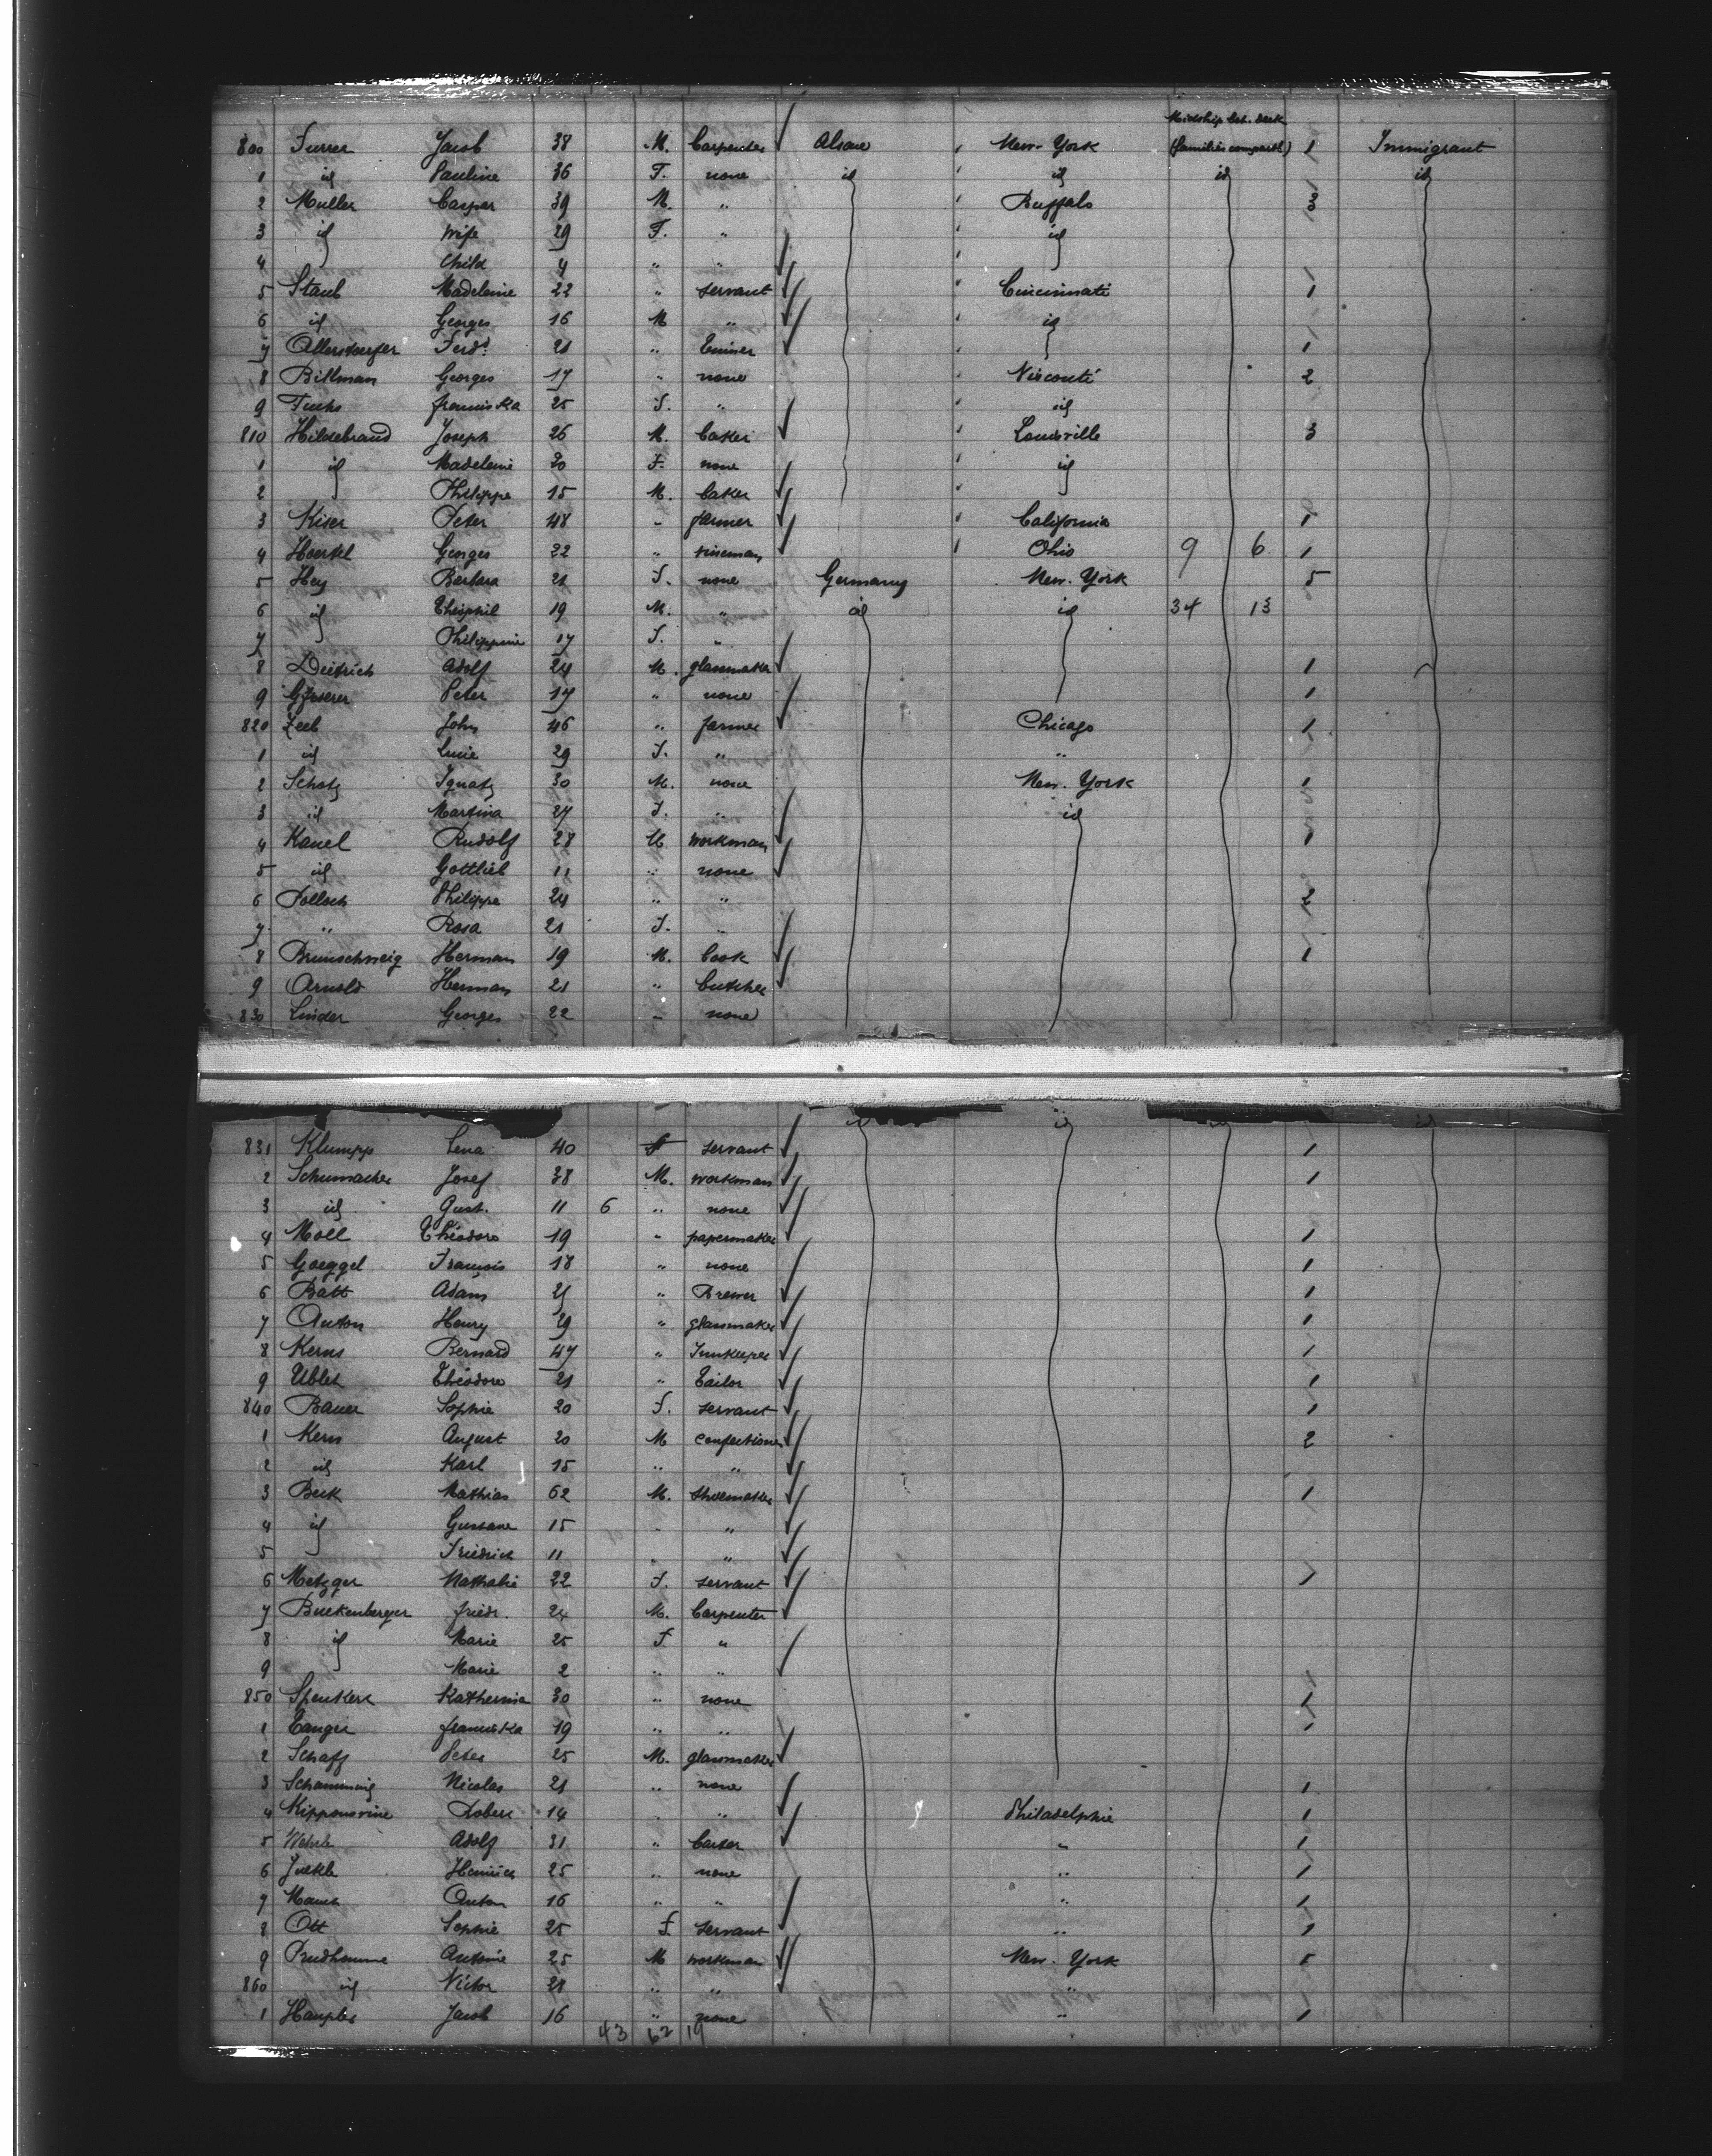 Midship bet. deck
800 Furrer Jacob 38 M. Carpenter Alsace New-York (families compartt) 1 Immigrant
1 id Pauline 36 F. none id id id id
2 Muller Caspar 39 M. " Buffalo 3
3 id wife 29 F. " id
4 child 4 " "
5 Staub Madeleine 22 " servant Cincinnati 1
6 id Georges 16 M " id
7 Ferd. 21 " 1
8 Billman Georges 17 " none 2
9 Fuchs franciska 25 F. " id
810 Hildebrand Joseph 26 M. baker Louisville 3
1 id Madeleine 20 F. none id
2 Philippe 15 M. baker
3 Kiser Peter 48 " farmer California 1
4 Georges 22 " Ohio 9 6 1
5 Hey Barbara 21 F. none Germany New-York 5
6 id Théophil 19 M. " id id 34 13
7 Philippine 17 F. "
8 Dietrich Adolf 24 M. glassmaker 1
9 Peter 17 " none 1
820 Zeeb John 46 " farmer Chicago 1
1 id Lucie 29 F. " "
2 Schatz Ignatz 30 M. none New-York 1
3 id Martina 27 F. " id
4 Kanel Rudolf 28 M workman 1
5 id Gottlieb 11 " none
6 Philippe 24 " " 2
7 " Rosa 21 F. "
8 Brunschweig Herman 19 M. Cook 1
9 Arnold Herman 21 " butcher
830 Linder Georges 22 " none
831 Klumpp Lena 40 F servant 1
2 Schumacher Josef 38 M. workman 1
3 id Gust. 11 6 " none
4 Moll Théodore 19 " papermaker 1
5 Goeggel François 18 " none 1
6 Batt Adam 25 " Brewer 1
7 Anton Henry 29 " glassmaker 1
8 Kerns Bernard 47 " Innkeeper 1
9 Théodore 21 " Tailor 1
840 Bauer Sophie 20 F. servant 1
1 Kern August 20 M confectioner 2
2 id Karl 15 " "
3 Beck Mathias 62 M. shoemaker 1
4 id Gustave 15 " "
5 Friedrich 11 " "
6 Metzger Nathalie 22 F. servant 1
7 Buckenberger friedr. 24 M. Carpenter
8 id Marie 25 F "
9 Marie 2 " "
850 Katherina 30 " none 1
1 franciska 19 " " 1
2 Schaff Peter 25 M. glassmaker
3 Nicolas 21 " none 1
4 Robert 14 " " Philadelphie 1
5 Wehrle Adolf 31 " baker " 1
6 Heinrich 25 " none " 1
7 Anton 16 " " " 1
8 Ott Sophie 25 F. servant " 1
9 Prudhomme Antoine 25 M workman New-York 5
860 id Victor 28 " " "
1 Jacob 16 " none " 1
43 62 19